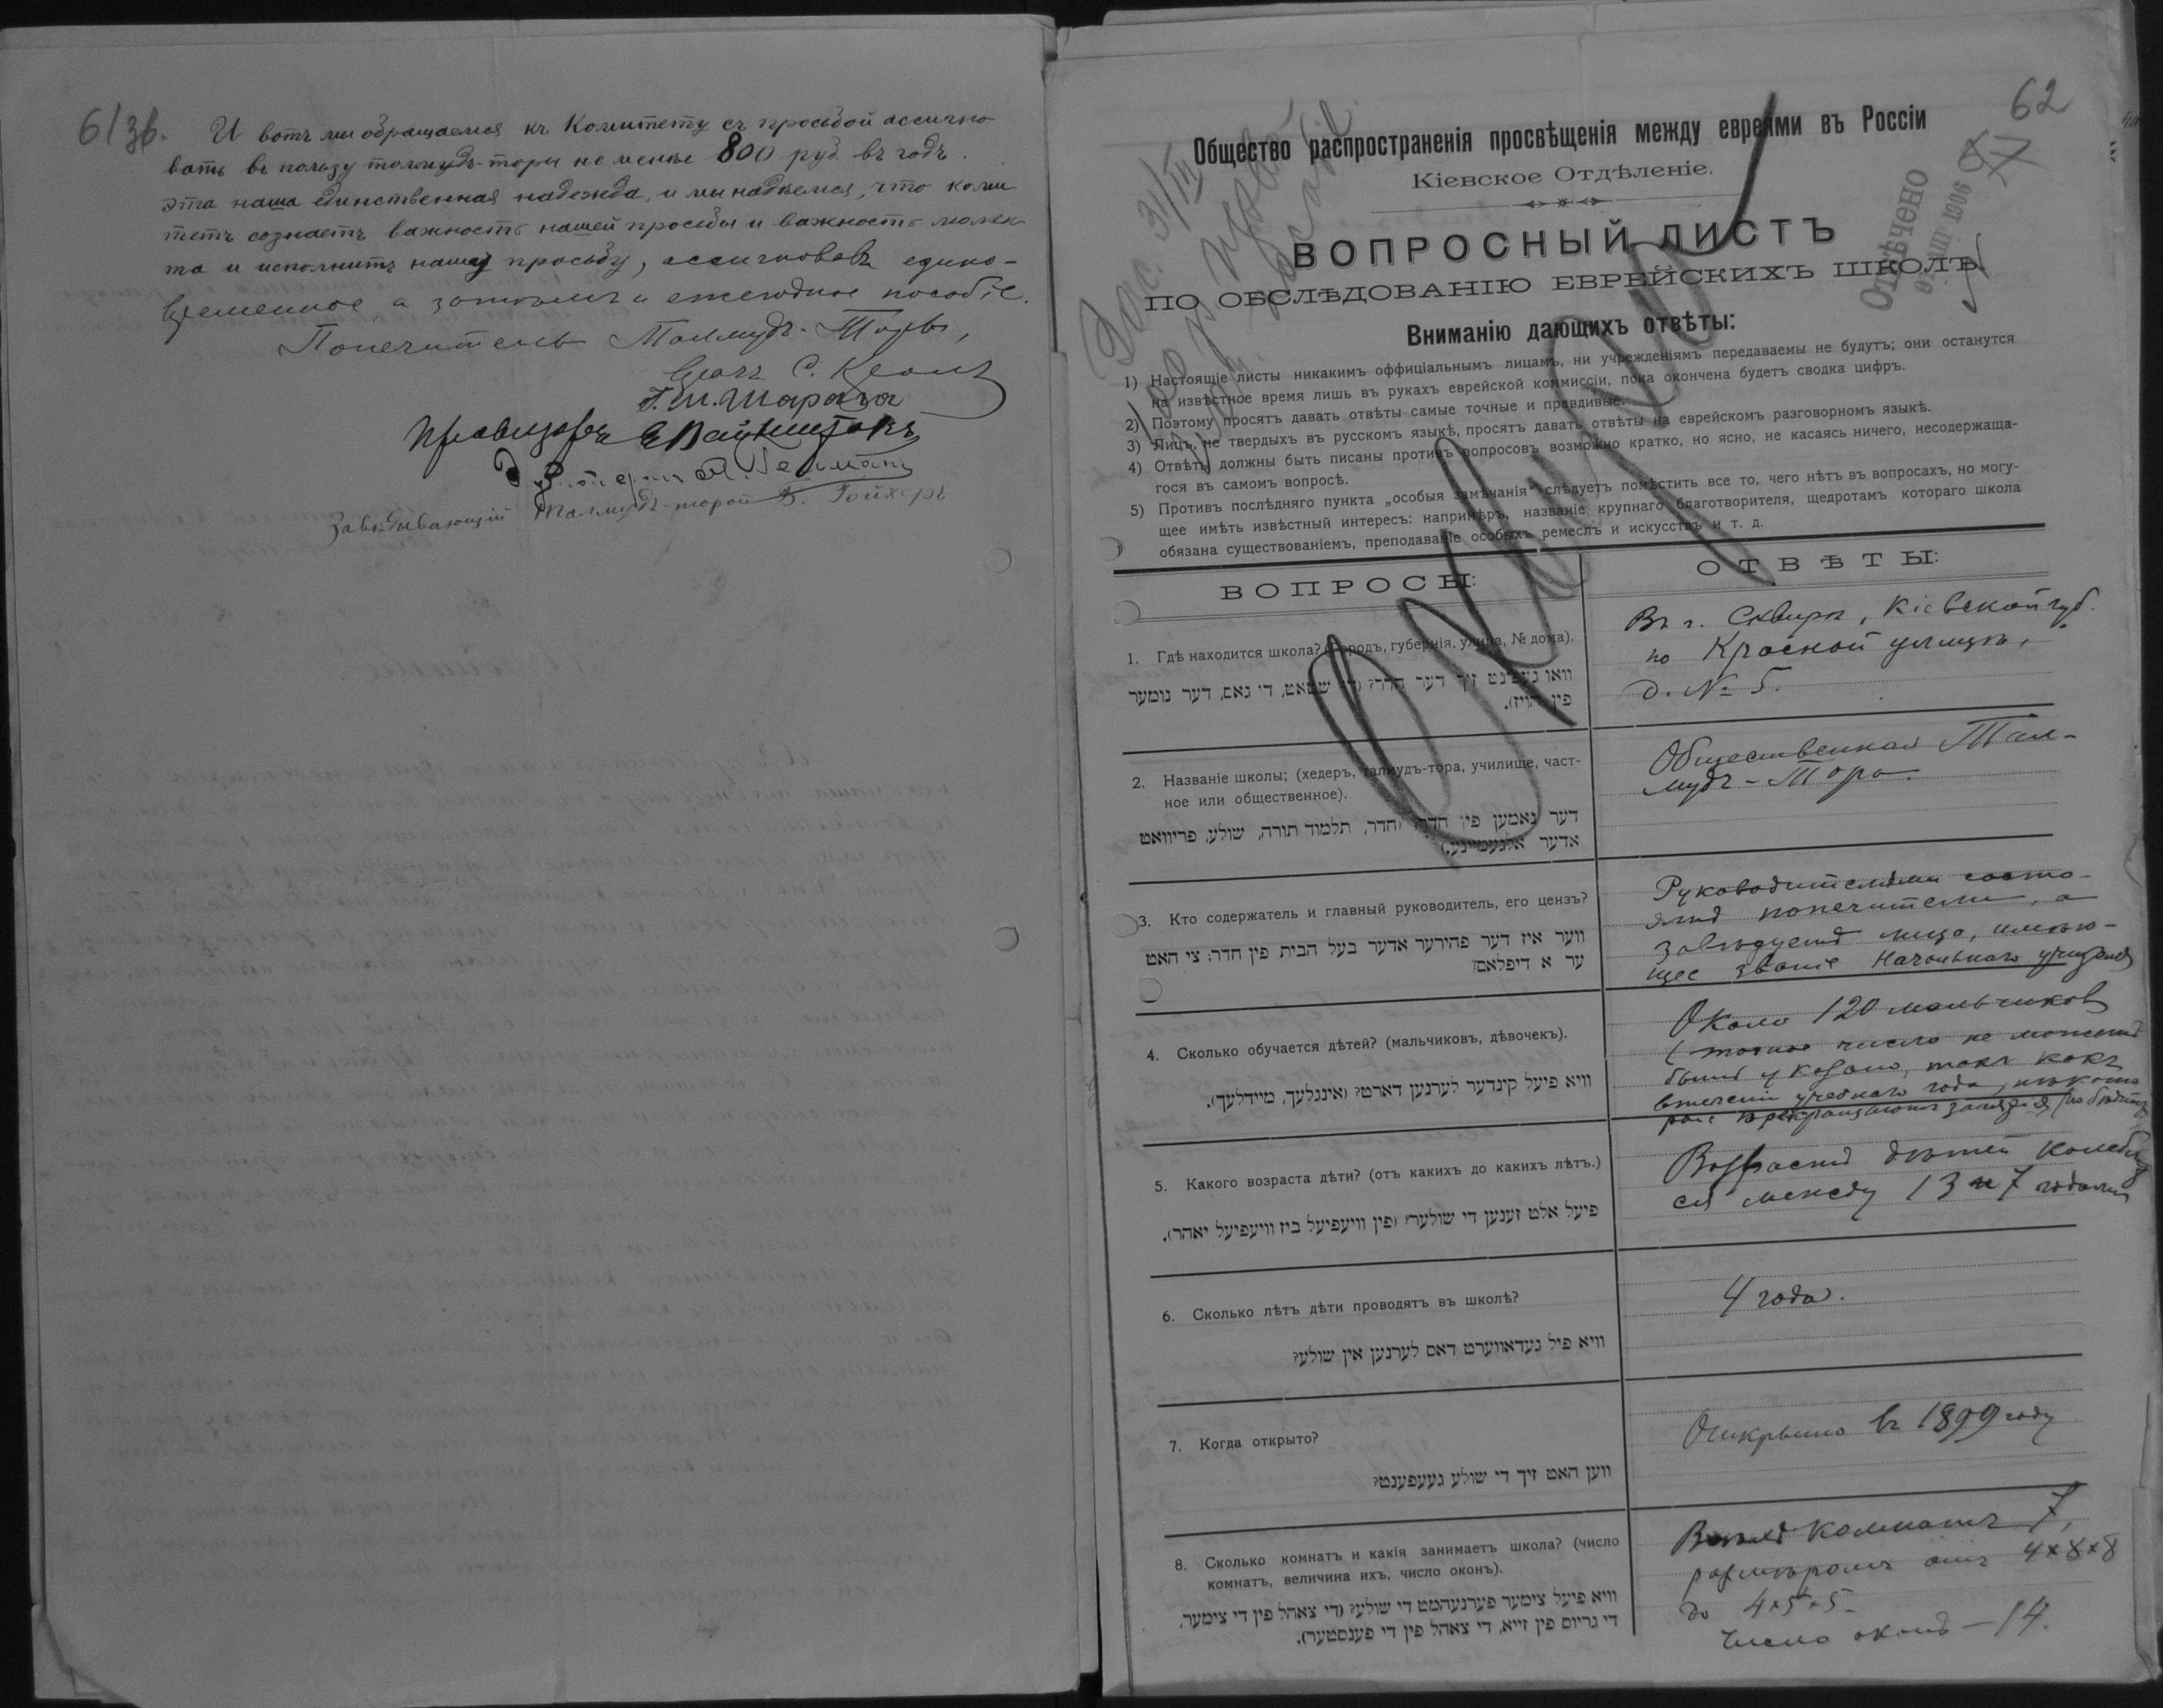 61зв.
И вотъ мы обращаемся къ Комитету съ просьбой ассигно
вать въ пользу талмудъ-торы не менѣе 800 руб. въ годъ.
эта наша единственная надежда, и мы надѣемся, что коми
тетъ сознаетъ важность нашей просьбы и важность момен
та и исполнитъ нашу просьбу, ассигновавъ едино-
временное а затѣмъ и ежегодное пособіе.
Попечители Талмудъ-Торы,
Врачъ С.
Провизоръ
Завѣдывающій Талмудъ-торой
62
Общество распространенія просвѣщенія между евреями въ Россіи
Кіевское Отдѣленіе.
Отвѣчено
1906
ВОПРОСНЫЙ ЛИСТЪ
ПО ОБСЛѢДОВАНІЮ ЕВРЕЙСКИХЪ ШКОЛЪ.
Вниманію дающихъ отвѣты:
1) Настоящіе листы никакимъ оффиціальнымъ лицамъ, ни учрежденіямъ передаваемы не будутъ; они останутся
на извѣстное время лишь въ рукахъ еврейской коммиссіи, пока окончена будетъ сводка цифръ.
2) Поэтому просятъ давать отвѣты самые точные и правдивые.
3) Лицъ, не твердыхъ въ русскомъ языкѣ, просятъ давать отвѣты на еврейскомъ разговорномъ языкѣ.
4) Отвѣты должны быть писаны противъ вопросовъ возможно кратко, но ясно, не касаясь ничего, несодержаща-
гося въ самомъ вопросѣ.
5) Противъ послѣдняго пункта „особыя замѣчанія“ слѣдуетъ помѣстить все то, чего нѣтъ въ вопросахъ, но могу-
щее имѣть извѣстный интересъ: напримѣръ, названіе крупнаго благотворителя, щедротамъ котораго школа
обязана существованіемъ, преподаваніе особыхъ ремеслъ и искусствъ и т. д.
ВОПРОСЫ:
ОТВѢТЫ:
1. Гдѣ находится школа? (городъ, губернія, улица, № дома).
וואו געפינט זיך דער חדר? (די שטאט, די גאס, דער נומער
פין הויז).
Въ г. Сквирѣ, Кіевской губ.
по Красной улицѣ,
д. № 5.
2. Названіе школы; (хедеръ, талмудъ-тора, училище, част-
ное или общественное).
דער נאמען פין חדר? (חדר, תלמוד תורה, שולע, פריוואט
אדער אלגעמיינע.)
Общественная Тал-
мудъ-Тора.
3. Кто содержатель и главный руководитель, его цензъ?
ווער איז דער פהירער אדער בעל הבית פין חדר; צי האט
ער א דיפלאם?
Руководителями состо-
ятъ попечители, а
завѣдуетъ лицо, имѣю-
щее званіе Начальнаго учителя
4. Сколько обучается дѣтей? (мальчиковъ, дѣвочекъ).
וויא פיעל קינדער לערנען דארט? (אינגלעך, מיידלעך).
Около 120 мальчиковъ
(точное число не можетъ
быть указано, такъ какъ
втеченіи учебнаго года, нѣкото
рые прекращаютъ занятія
5. Какого возраста дѣти? (отъ какихъ до какихъ лѣтъ.)
פיעל אלט זענען די שולער? (פין וויעפיעל ביז וויעפיעל יאהר).
Возрастъ дѣтей колеблет
ся между 13 и 7 годами
6. Сколько лѣтъ дѣти проводятъ въ школѣ?
וויא פיל געדאווערט דאס לערנען אין שולע?
4 года.
7. Когда открыто?
ווען האט זיך די שולע געעפענט?
Открыта въ 1899 году
8. Сколько комнатъ и какія занимаетъ школа? (число
комнатъ, величина ихъ, число оконъ).
וויא פיעל צימער פערנעהמט די שולע? (די צאהל פין די צימער,
די גרויס פין זייא, די צאהל פין די פענסטער).
Всѣхъ комнатъ 7,
размѣромъ отъ 4×8×8
до 4×5×5.
Число оконъ — 14.